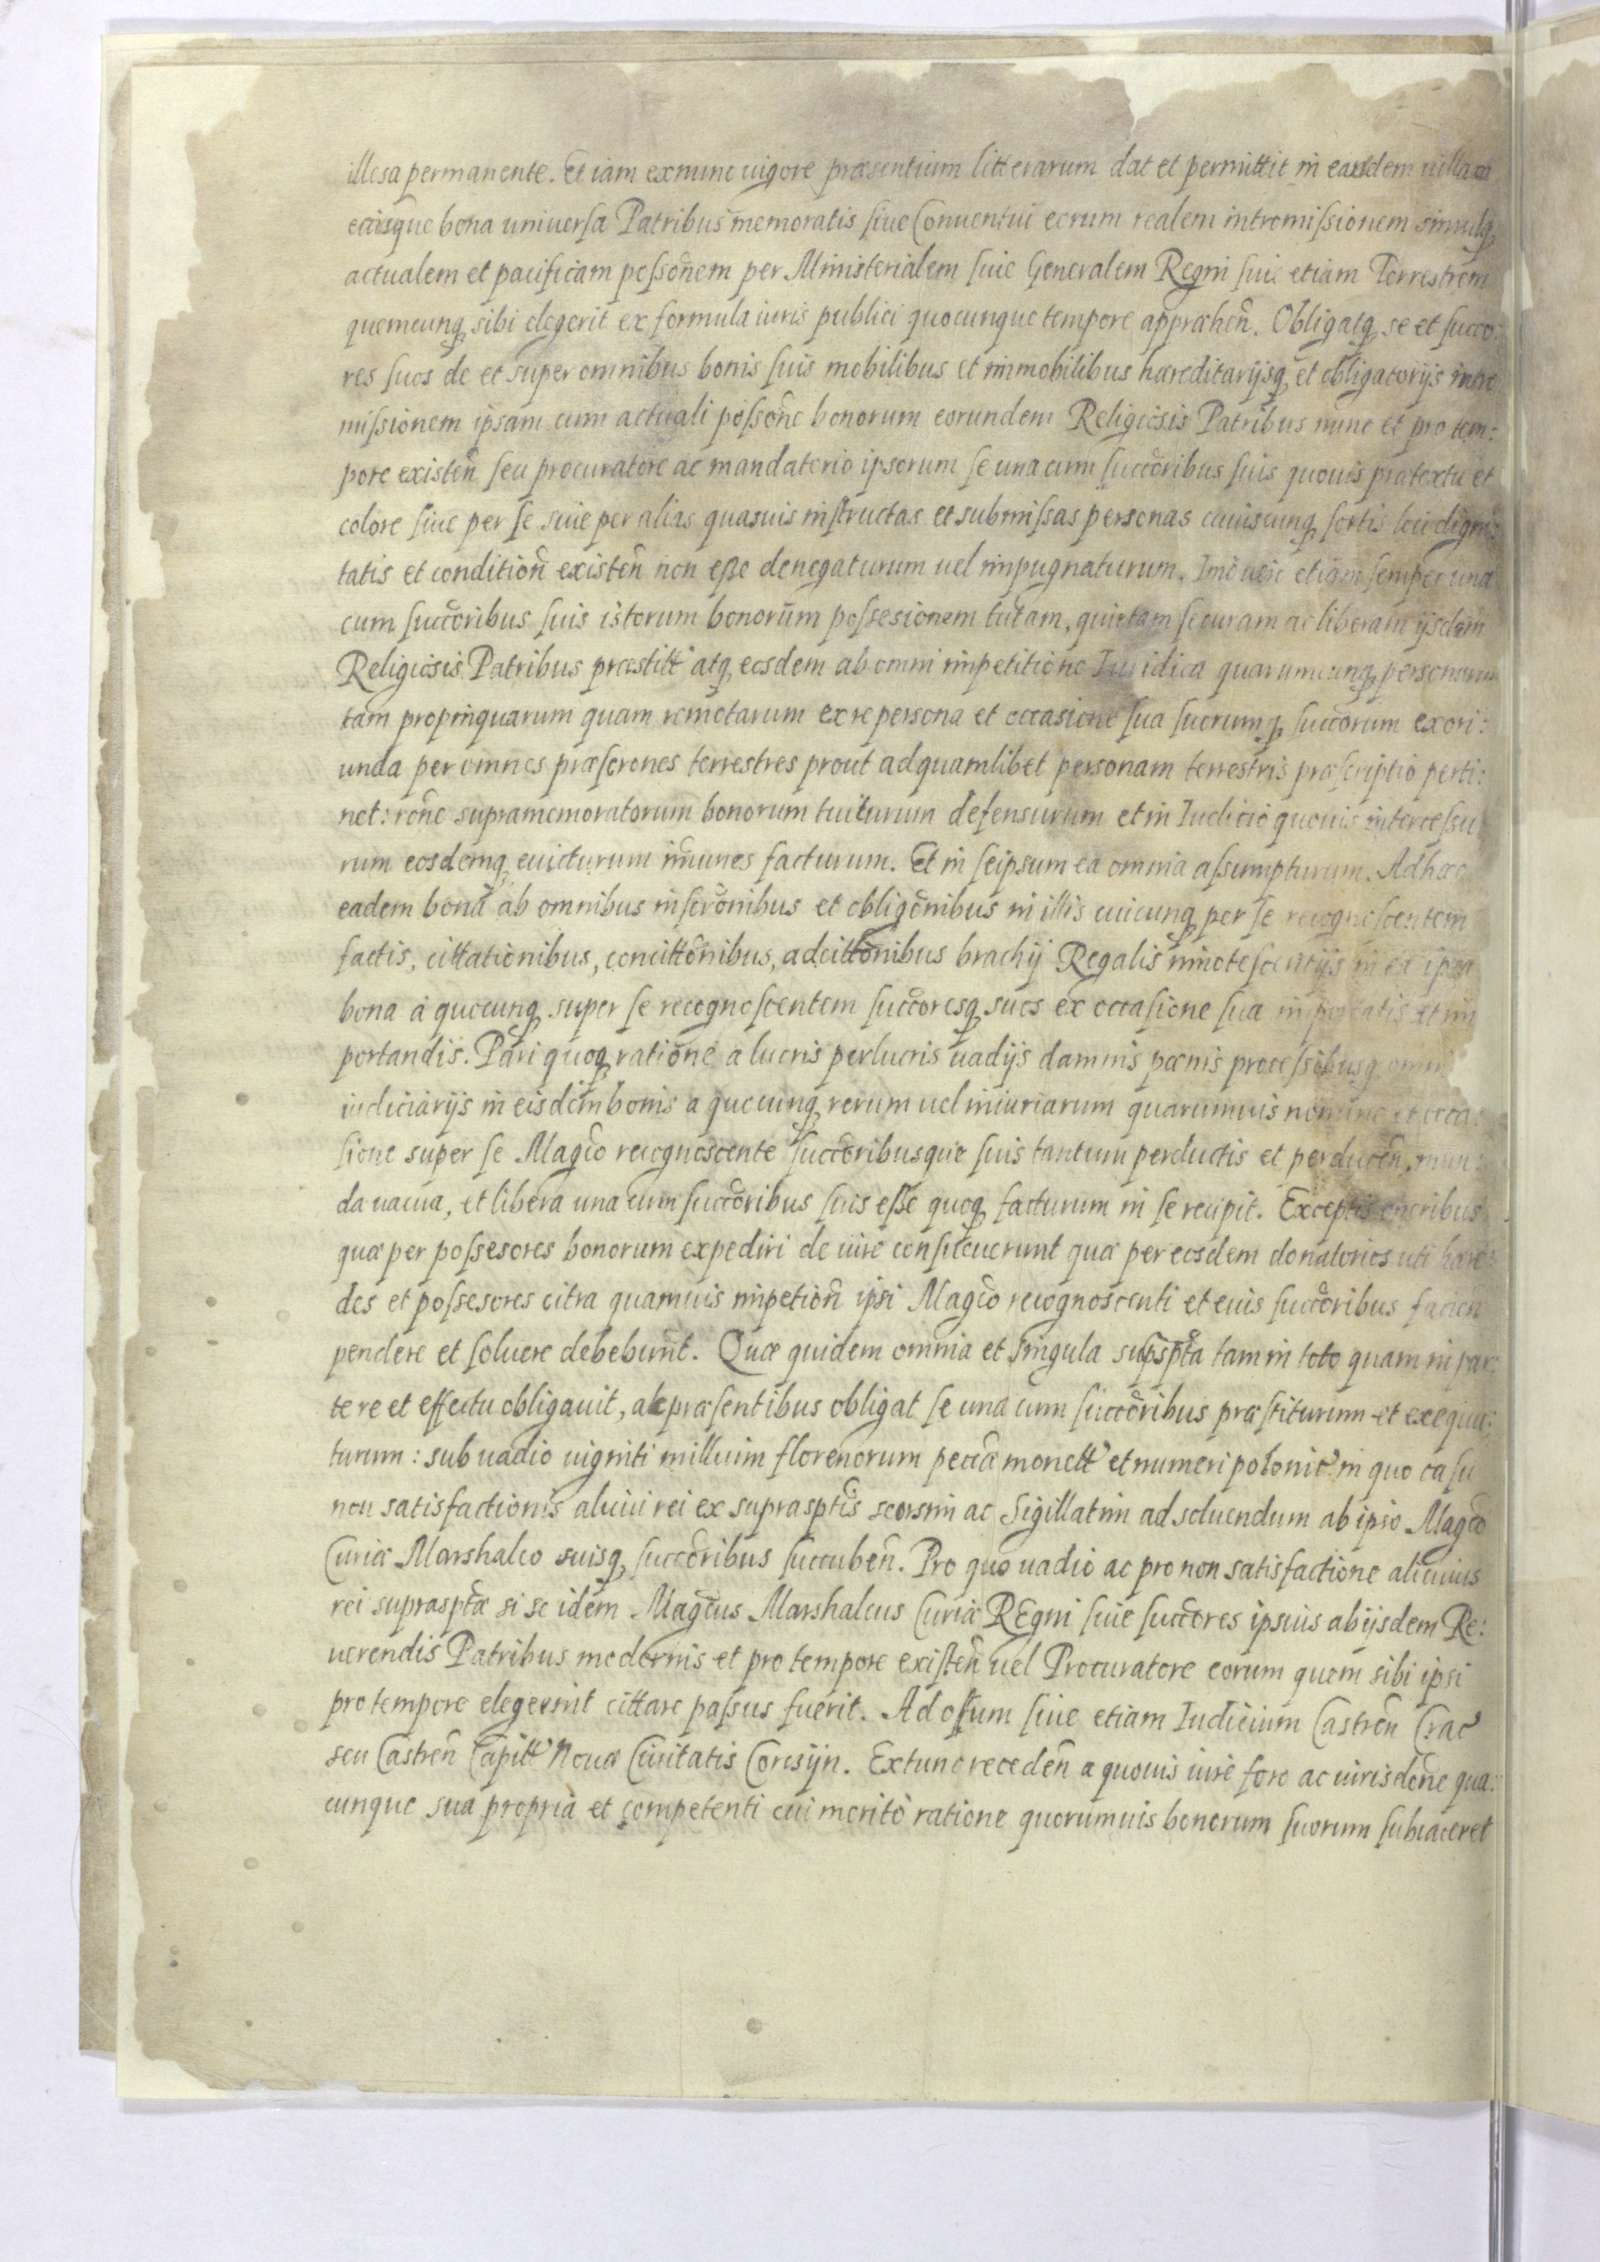 illesa permanente. Et iam exnunc uigore præsentium litterarum dat et permittit in eandem uillam
eiusque bona uniuersa Patribus memoratis siue Conuentui eorum realem intromissionem simulq
actualem et pacificam possōnem per Ministerialem siue Generalem Regni siue etiam Terrestrem
quemcunq sibi elegerit ex formula iuris publici quocunque tempore appræhen̄. Obligatq se et succo:
res suos de et super omnibus bonis suis mobilibus et immobilibus hæreditarijsq et obligatorijs intro
missionem ipsam cum actuali possōne bonorum eorundem Religiosis Patribus nunc et pro tem:
pore existen̄ seu procuratore ac mandatorio ipsorum se una cum succōribus suis quouis prætextu et
colore siue per se siue per alias quasuis instructas et submissas personas cuiuscunq sortis loci digni:
tatis et condition̄ existen̄ non esse denegaturum uel impugnaturum. Imo uero etiam semper una
cum succōribus suis istorum bonorum possesionem tutam, quietam securam ac liberam ijsdem
Religiosis Patribus præstitt atq eosdem ab omni impetitione Iuridica quarumcunq personarum
tam propinquarum quam remotarum ex re persona et occasione sua suorumq succorum exori:
unda per omnes præscrōnes terrestres prout ad quamlibet personam terrestris præscriptio perti:
net: rōne supramemoratorum bonorum tuiturum defensurum et in Iudicio quouis intercessu
rum eosdemq euicturum im̄unes facturum. Et in seipsum ea omnia assumpturum. Adhæc
eadem bona ab omnibus inscrōnibus et obligōnibus in illis cuicunq per se recognoscentem
factis, cittationibus, concittōnibus, adcittōnibus brachij Regalis innotescentijs in ea ipsa
bona a quocunq super se recognoscentem succōresq suos ex occasione sua importatis et im
portandis. Pari quoq ratione a lucris perlucris uadijs damnis pænis processibusq omni
iudiciarijs in eisdem bonis a quocunq rerum uel iniuriarum quarumuis nomine et occa:
sione super se Magco recognoscente succōribusque suis tantum perductis et perducen̄, mun:
da uacua, et libera una cum succōribus suis esse quoq facturum in se recipit. Exceptis oneribus
quæ per possesores bonorum expediri de iure consueuerunt quæ per eosdem donatorios uti hære:
des et possesores citra quamuis impetion̄ ipsi Magco recognoscenti et euis succōribus facien̄
pendere et soluere debebunt. Quæ quidem omnia et singula supspta tam in toto quam in par:
te re et effectu obligauit, ac præsentibus obligat se una cum succōribus præstiturum et exequu:
turum: sub uadio uiginti millium florenorum peccæ monett et numeri polonic in quo casu
non satisfactionis alicui rei ex suprasptis seorsim ac sigillatim ad soluendum ab ipso Magco
Curiæ Marshalco suisq succōribus succuben̄. Pro quo uadio ac pro non satisfactione alicuius
rei suprasptæ si se idem Magcus Marshalcus Curiæ REgni siue succōres ipsius ab ijsdem Re:
uerendis Patribus modernis et pro tempore existen̄ uel Procuratore eorum quem sibi ipsi
pro tempore elegerint cittare passus fuerit. Ad osſum siue etiam Iudicium Castren̄ Crac
seu Castren̄ Capitt Nouæ Ciuitatis Corcsijn. Extunc receden̄ a quouis iure foro ac iurisdōne qua:
cunque sua propria et competenti cui merito ratione quorumuis bonorum suorum subiaceret